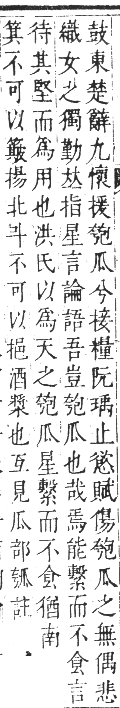 鼓東楚辭九懷援瓟瓜兮接糧阮瑀止慾賦傷匏瓜之無偶悲
織女之獨勤叅指星言論語吾豈匏瓜也哉焉能繫而不食言
待其堅而為用也洪氏以為天之匏瓜星繫而不食猶南
箕不可以簸揚北斗不可以挹酒漿也互見瓜部瓠註